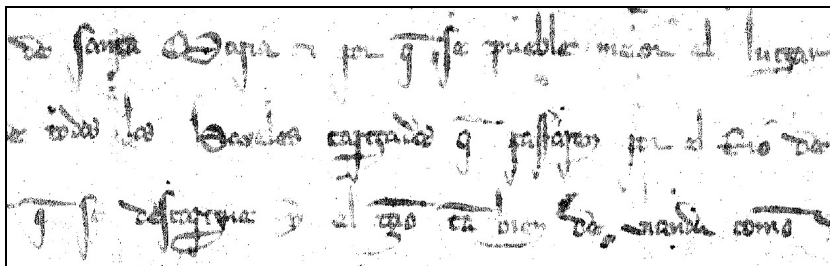 de santa Maria τ por q̄ se pueble meior el lugar
de todos los baxeles cargados q̄ passaren por el Rio de
q̄ se descargue y el tão tã bien de yanda como